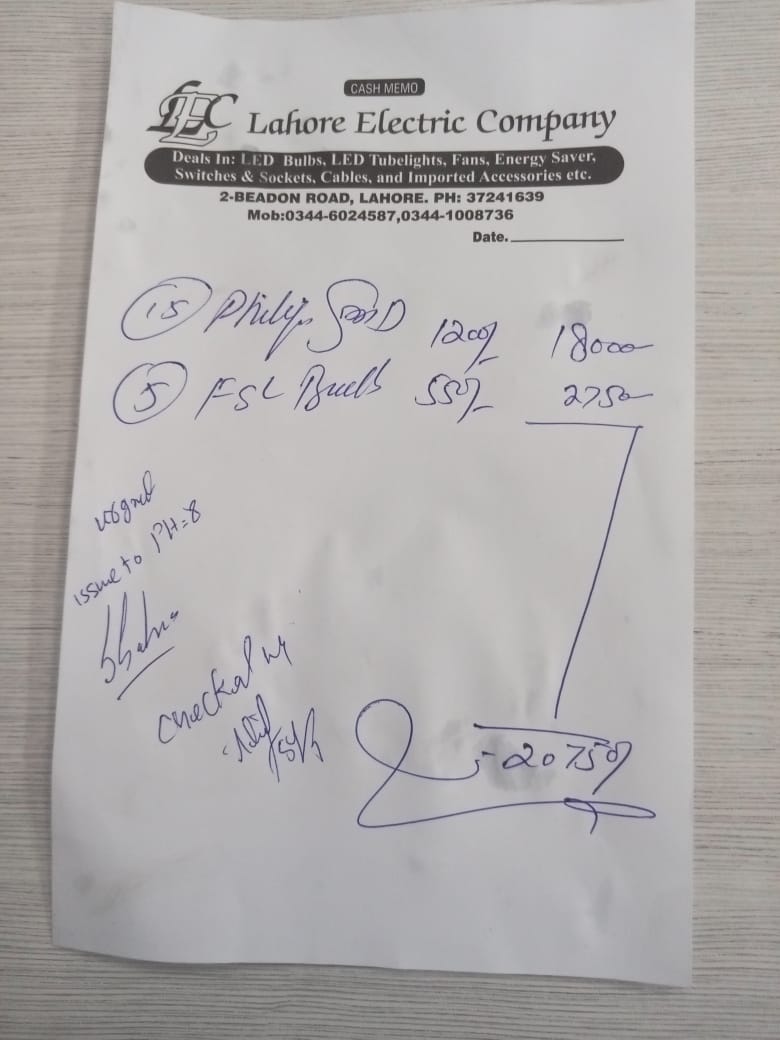 CASH MEMO
LEC Lahore Electric Company
Deals In: LED Bulbs, LED Tubelights, Fans, Energy Saver,
Switches & Sockets, Cables, and Imported Accessories etc.
2-BEADON ROAD, LAHORE. PH: 37241639
Mob:0344-6024587,0344-1008736
Date.
15 Philips 1200/- 18000
5 FSL 550/- 2750
issue to PH=8
checked by
20750/